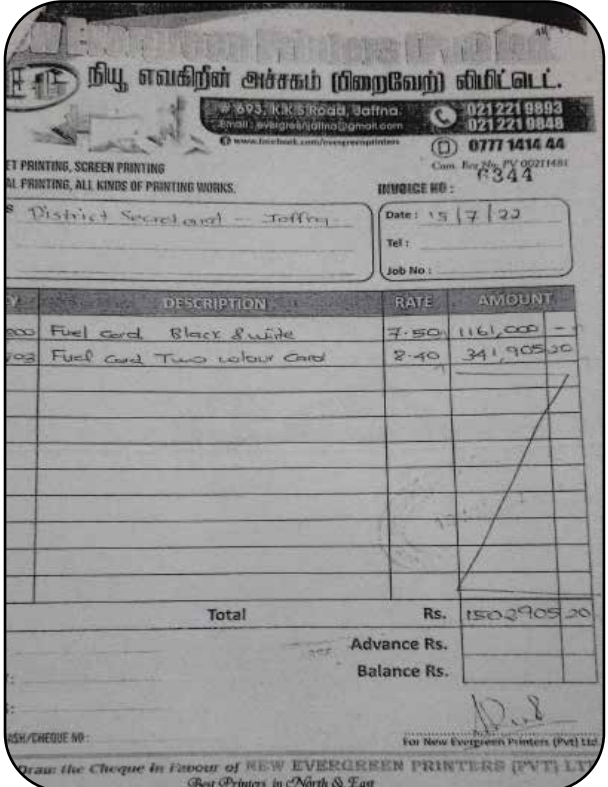 Evergreen Printers (Pvt) Ltd.
நியூ எவகிறீன் அச்சகம் (பிறைவேற்) லிமிட்டெட்.
# 693, K.K.S Road, Jaffna.
Email : evergreenjaffna@gmail.com
www.facebook.com/evergreenprinters
021 221 9893
021 221 9848
0777 1414 44
Com. Reg No. PV 00211481
ET PRINTING, SCREEN PRINTING
AL PRINTING, ALL KINDS OF PRINTING WORKS.
INVOICE NO :
6344
District Secretariat - Jaffna
Date : 15/7/22
Tel :
Job No :
DESCRIPTION RATE AMOUNT
Fuel Card Black & white 7.50 1161,000 -
Fuel Card Two colour Card 8.40 341,905 20
Total Rs. 1502905 20
Advance Rs.
Balance Rs.
ASH/CHEQUE NO :
For New Evergreen Printers (Pvt) Ltd
Draw the Cheque in Favour of NEW EVERGREEN PRINTERS (PVT) LT
Best Printers in North & East